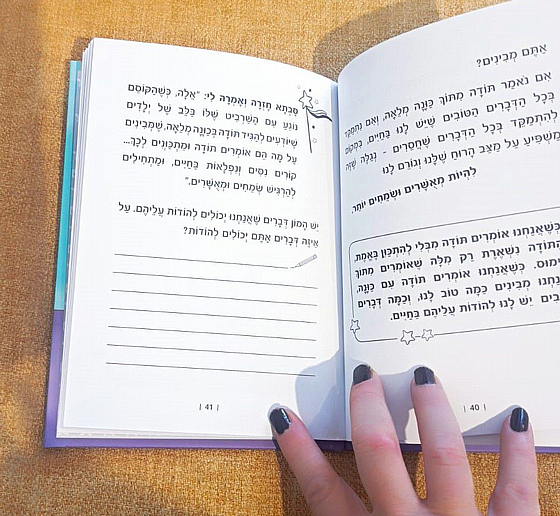 אַתֶּם מְבִינִים?
אִם נֹאמַר תּוֹדָה מִתּוֹךְ כַּוָּנָה מְלֵאָה, וְאִם נִתְמַקֵּד
בְּכָל הַדְּבָרִים הַטּוֹבִים שֶׁיֵּשׁ לָנוּ בַּחַיִּים, בִּמְקוֹם
לְהִתְמַקֵּד בְּכָל הַדְּבָרִים שֶׁחֲסֵרִים - נְגַלֶּה שֶׁזֶּה
מַשְׁפִּיעַ עַל מַצַּב הָרוּחַ שֶׁלָּנוּ וְגוֹרֵם לָנוּ
לִהְיוֹת מְאֻשָּׁרִים וּשְׂמֵחִים יוֹתֵר.
כְּשֶׁאֲנַחְנוּ אוֹמְרִים תּוֹדָה מִבְּלִי לְהִתְכַּוֵּן בֶּאֱמֶת,
הַתּוֹדָה נִשְׁאֶרֶת רַק מִלָּה שֶׁאוֹמְרִים מִתּוֹךְ
נִימוּס. כְּשֶׁאֲנַחְנוּ אוֹמְרִים תּוֹדָה עִם כַּוָּנָה,
אֲנַחְנוּ מְבִינִים כַּמָּה טוֹב לָנוּ, וְכַמָּה דְּבָרִים
יֵשׁ לָנוּ לְהוֹדוֹת עֲלֵיהֶם בַּחַיִּים.
| 40 |
סָבְתָא חָזְרָה וְאָמְרָה לִי: "אֵלָה, כְּשֶׁהַקּוֹסֵם
נוֹגֵעַ עִם הַשַּׁרְבִיט שֶׁלּוֹ בַּלֵּב שֶׁל יְלָדִים
שֶׁיּוֹדְעִים לְהַגִּיד תּוֹדָה בְּכַוָּנָה מְלֵאָה, שֶׁמְּבִינִים
עַל מָה הֵם אוֹמְרִים תּוֹדָה וּמִתְכַּוְּנִים לְכָךְ...
קוֹרִים נִסִּים וְנִפְלָאוֹת בַּחַיִּים, וּמַתְחִילִים
לְהַרְגִּישׁ שְׂמֵחִים וּמְאֻשָּׁרִים."
יֵשׁ הֲמוֹן דְּבָרִים שֶׁאֲנַחְנוּ יְכוֹלִים לְהוֹדוֹת עֲלֵיהֶם. עַל
אֵיזֶה דְּבָרִים אַתֶּם יְכוֹלִים לְהוֹדוֹת?
| 41 |